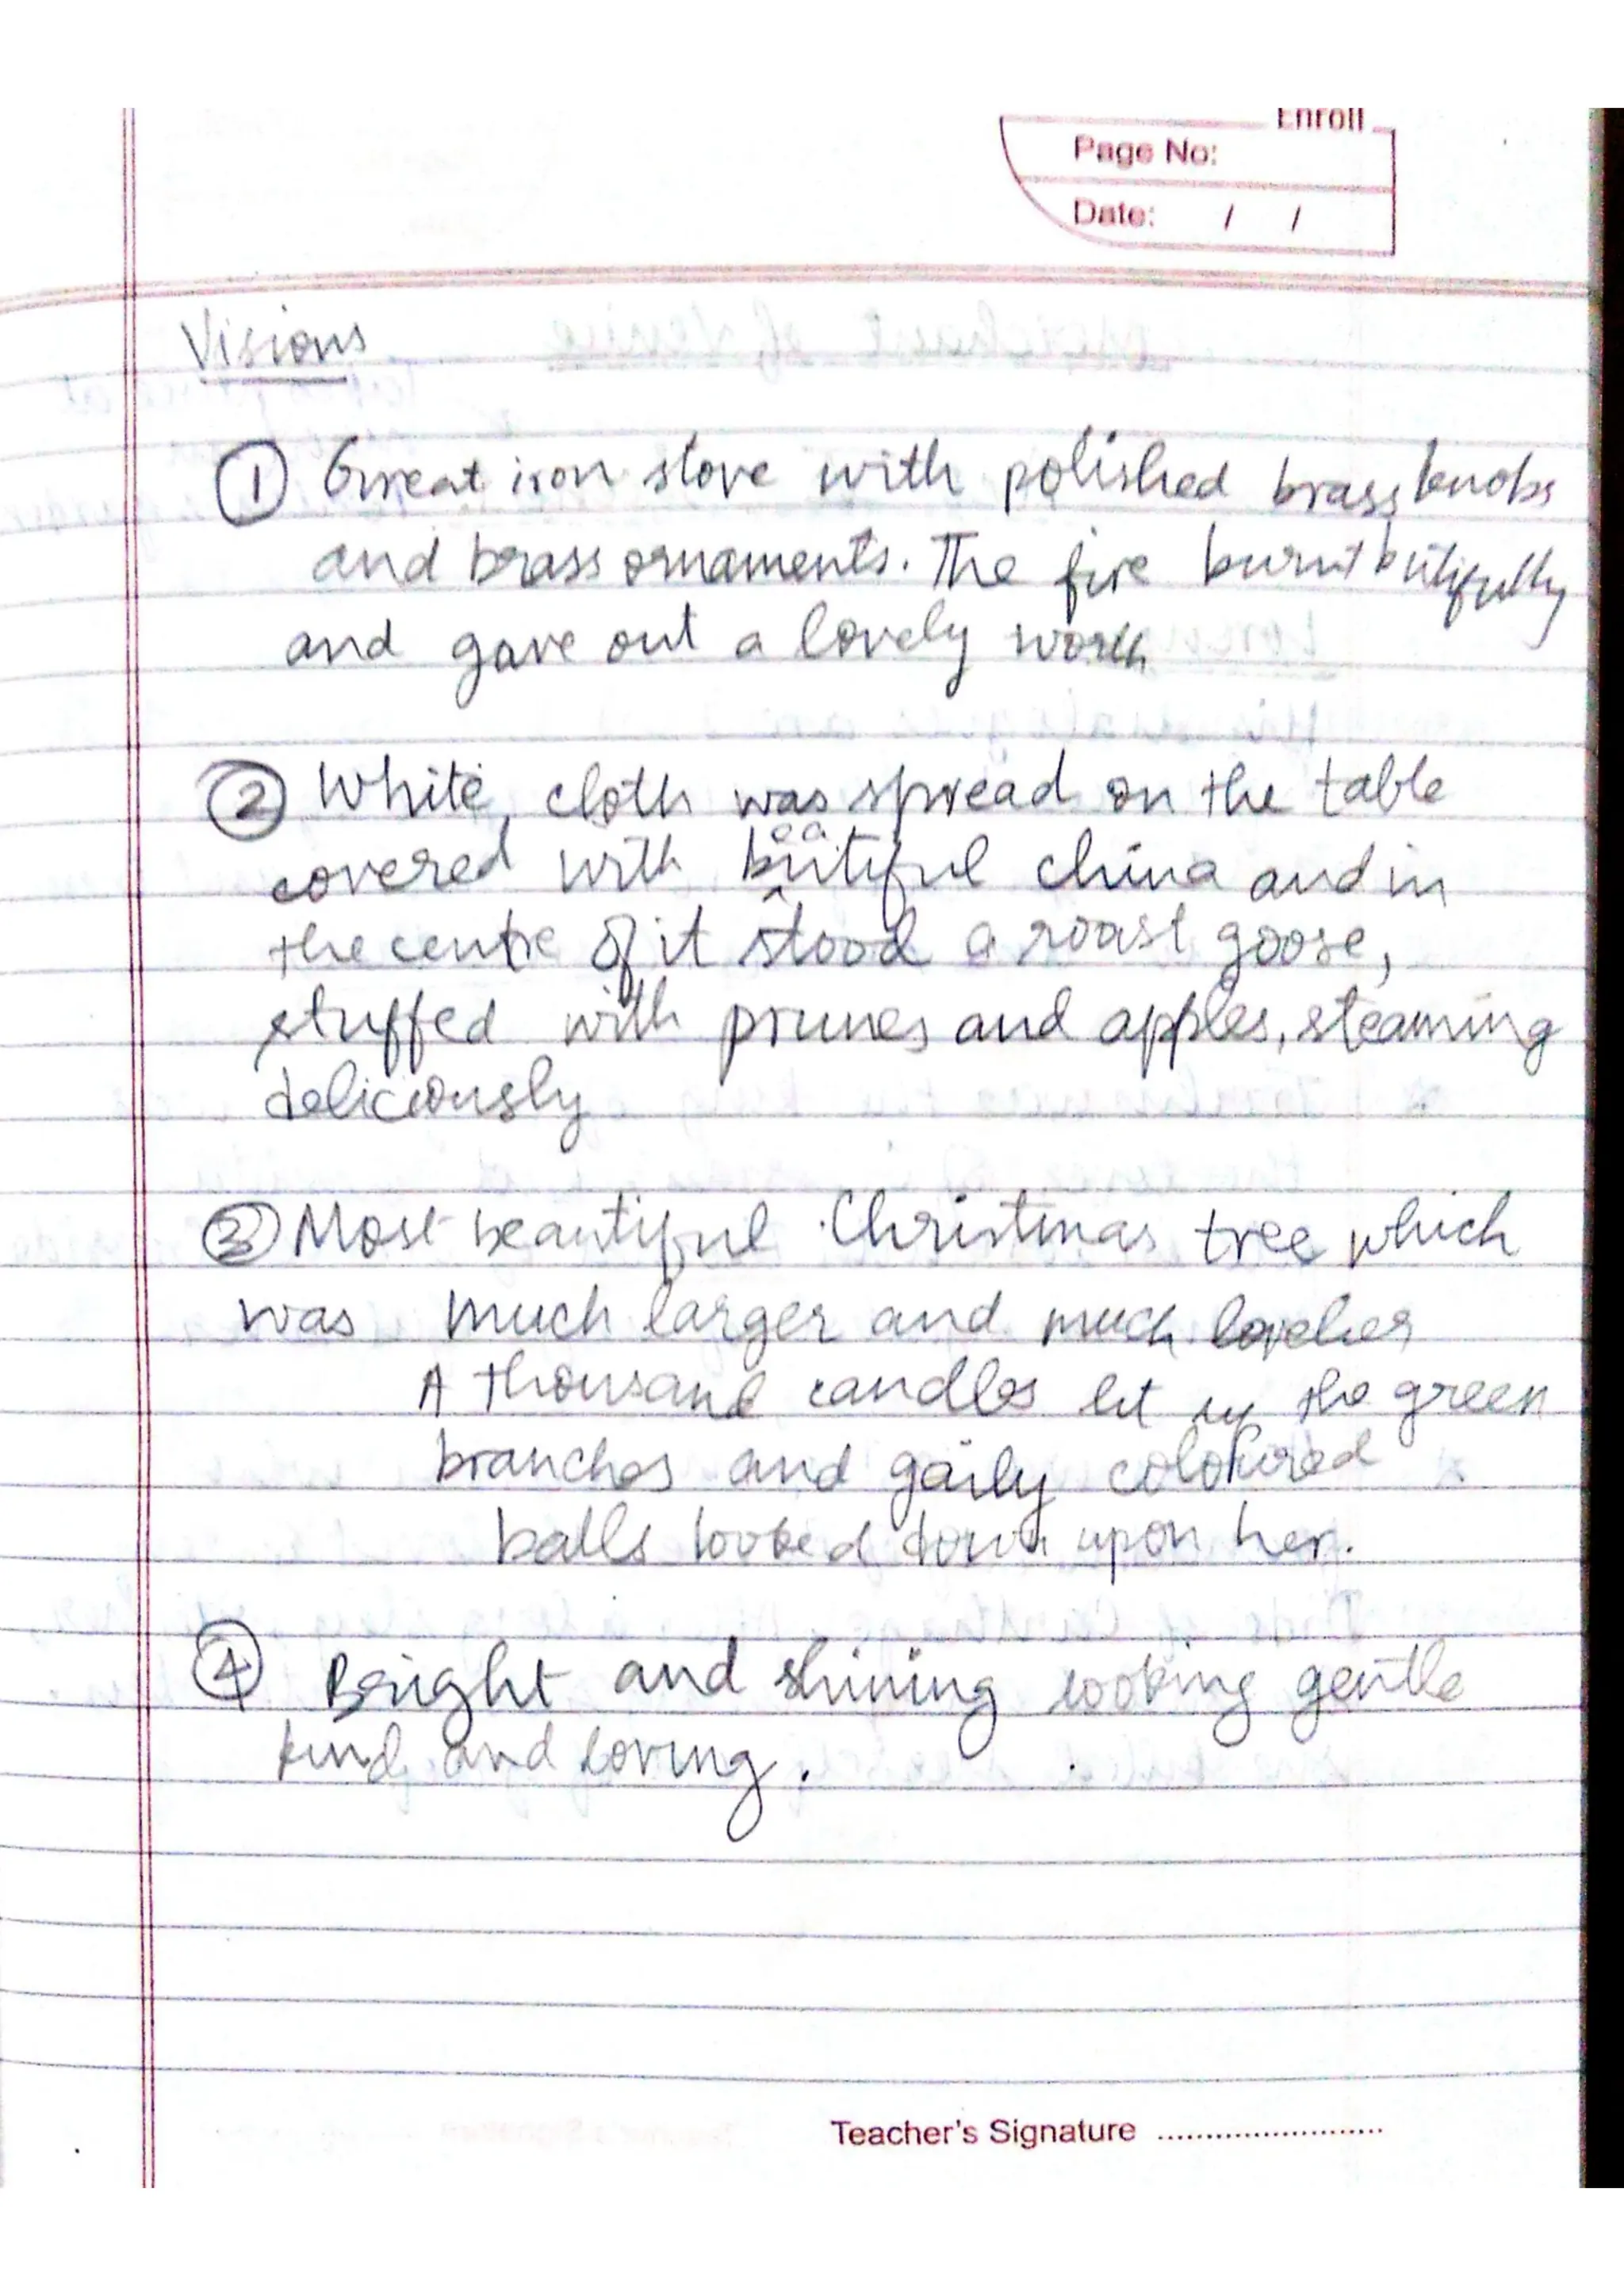 Enroll
Page No:
Date: / /
Visions
① Great iron stove with polished brass knobs
and brass ornaments. The fire burnt butifully
and gave out a lovely
② White cloth was spread on the table
covered with beautiful china and in
the centre of it stood a roast goose,
stuffed with prunes and apples, steaming
deliciously
③ Most beautiful Christmas tree which
was much larger and much lovelier
A thousand candles lit up the green
branches and gaily coloured
balls looked down upon her.
④ Bright and shining looking gentle
kind and loving.
Teacher's Signature ........................